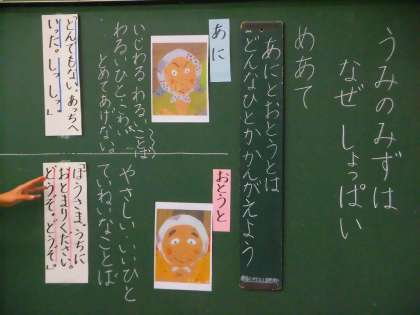 うみのみずは
なぜ しょっぱい
めあて
あにとおとうとは
どんなひとかかんがえよう
あに
いじわる わるいことば
わるいひと、こわい
とめてあげない
「とんでもない。あっちへ
いった。しっしっ。」
おとうと
やさしい いいひと
ていねいなことば
「ぼうさま、うちに
おとまりください。
どうぞ、どうぞ。」